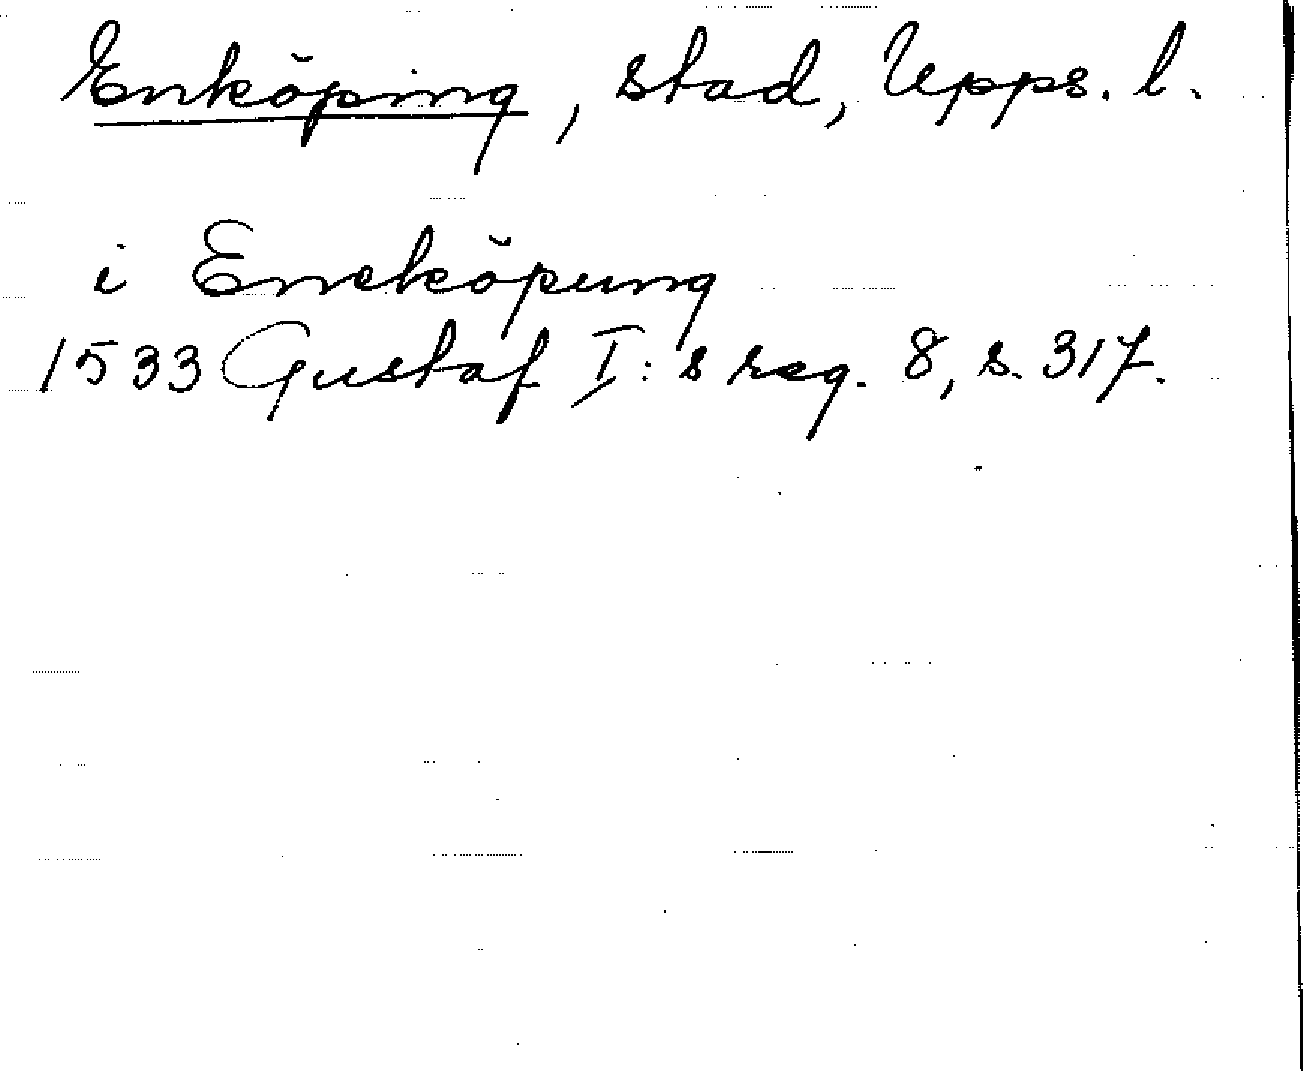 Enköping, stad, Upps. l.
i Eneköpung
1533 Gustaf I: s reg. 8, s. 317.